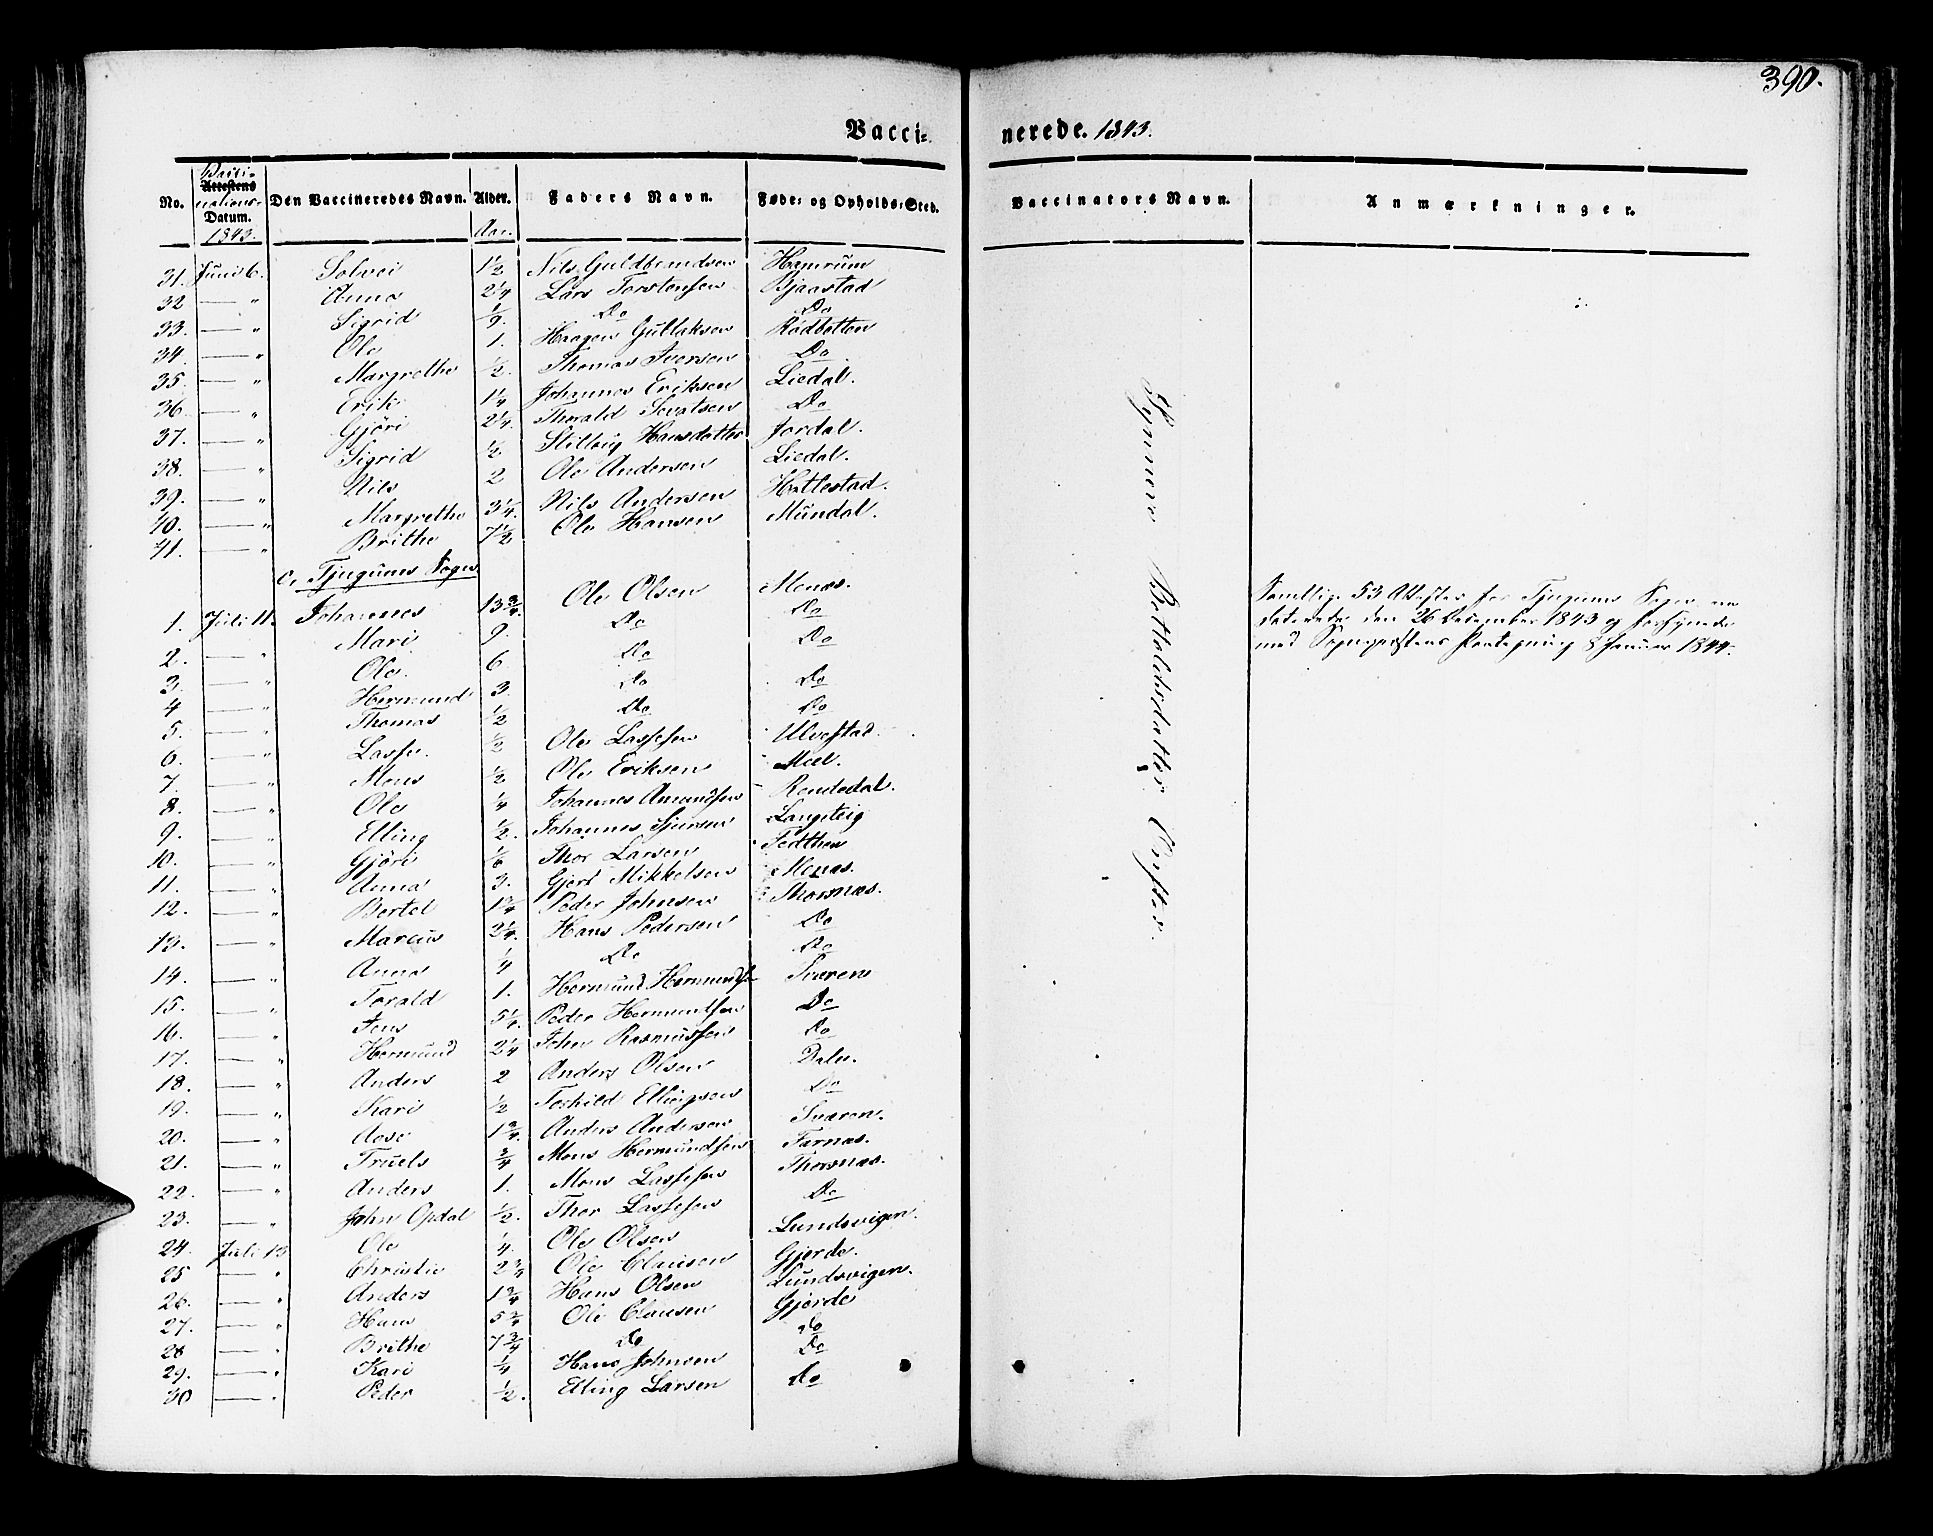 390.
Vacci- nerede. 1843.
No. Vacci- Attestens nations- Datum. 1843. Den Vaccineredes Navn. Alder. Aar. Faders Navn. Føde- og Opholds-Sted. Vaccinators Navn. Anmærkninger.
31. Juni 6. Solvei 1½ Nils Guldbrandsen Hamrum
32 — " Anna 2¼ Lars Torstensen Bjaastad
33. — " Sigrid 1/9. Do Do
34. — " Ole 1. Haagen Gullaksen Rødbotten
35. — " Margrethe ½. Thomas Iversen Do
36. — " Erik 1¼ Johannes Eriksen Liedal.
37. — " Gjøri 2¼. Thorald Sevatsen Do
38. — " Sigrid ½. Stilloug Hansdatter Jordal.
39. — " Nils 2 Ole Andersen Liedal.
40. — " Margrethe 3¼. Nils Andersen Hatlestad.
41. — " Brithe 7½ Ole Hansen Mundal.
c, Tjugums Sogn
1. Juli 11. Johannes 13¾. Ole Olsen Menæs.
2. — " Mari 9. Do Do
3. — " Ole. 6. Do Do
4 — " Hermund 3. Do Do
5. — " Thomas ½ Do Do
6. — " Lasse. ½ Ole Lassesen Ulvestad
7. — " Mons ½ Ole Eriksen Mæl.
8. — " Ole ¼ Johannes Amundsen Rendedal.
9. — " Elling ½. Johannes Sjursen Langteig
10. — " Gjøri 1/6 Thor Larsen Fedthen
11. — " Anna 3. Gjert Mikkelsen Menæs.
12. — " Bertel 1¾ Peder Johnsen Thorsnæs.
13. — " Marcus 2¼. Hans Pedersen Do
14. — " Anna ¼ Do Do
15. — " Torald 1. Hermund Hermundsen Sværen
16. — " Jens 5¼. Peder Hermundsen Do
17. — " Hermund 2¼ John Rasmussen Do
18. — " Anders 2 Anders Olsen Dale.
19. — " Kari ½ Torkild Ellingsen Do
20. — " Aase 1¾. Anders Andersen Sværen.
21. — " Truels ¾ Mons Hermundsen Farnæs.
22. — " Anders 1. Mons Lassesen Thorsnæs.
23. — " John Opdal ½. Thor Lassesen Do
24. Juli 13 Ole ¼. Ole Olsen Lundsvigen.
25 — " Christie 2¾ Ole Clausen Gjerde.
26. — " Anders 1¾ Hans Olsen Lundsvigen.
27. — " Hans 5¾ Ole Clausen Gjerde
28 — " Brithe 7¾ Do Do
29. — " Kari ¼ Hans Johnsen Do
30 — " Peder ½. Elling Larsen Do
Synneve Botholdsdatter
Samtlige 53 Attester for Tjugums Sogn ere
daterede den 26 December 1843 og forsynede
med Sognepræstens Paategning 8 Januar 1844.